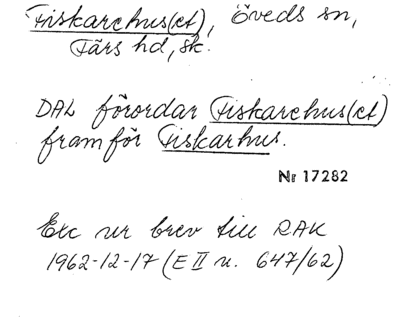 Fiskarehus(et), Öveds sn,
Färs hd, sk.
DAL förordar Fiskarehus(et)
framför Fiskarhus.
Nr 17282
Exc ur brev till RAK
1962-12-17 (E II u. 647/62)